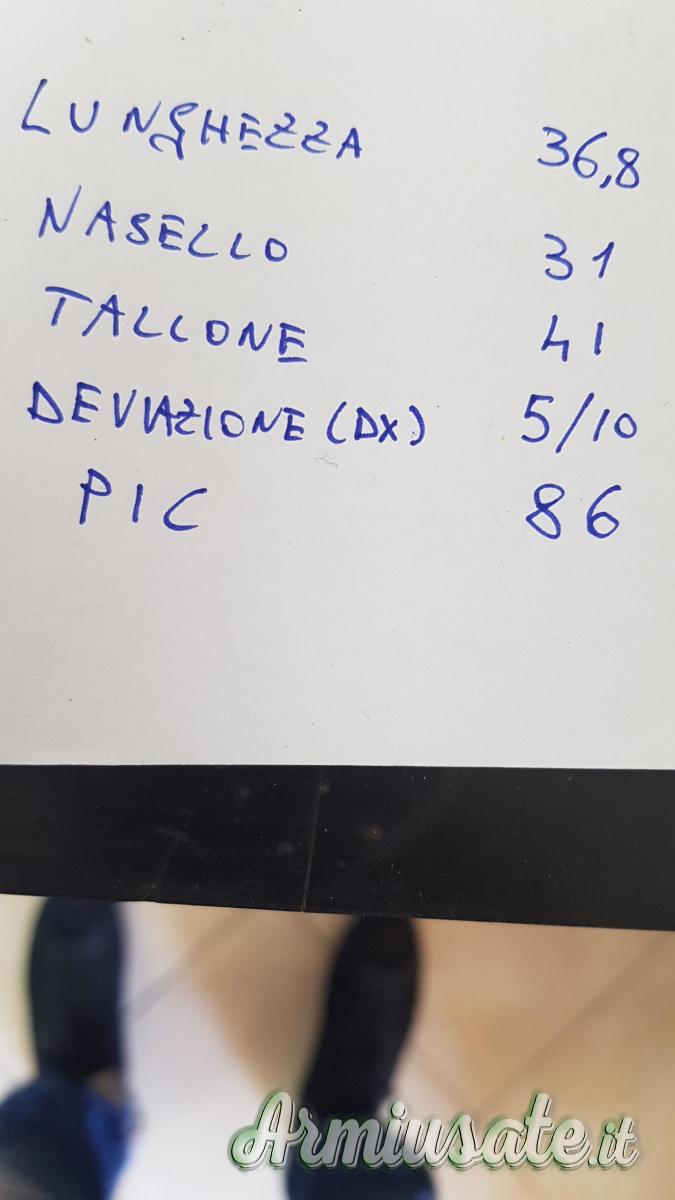 LUNGHEZZA 36,8
NASELLO 31
TALLONE 41
DEVIAZIONE (DX) 5/10
PIC 86
Armiusate.it